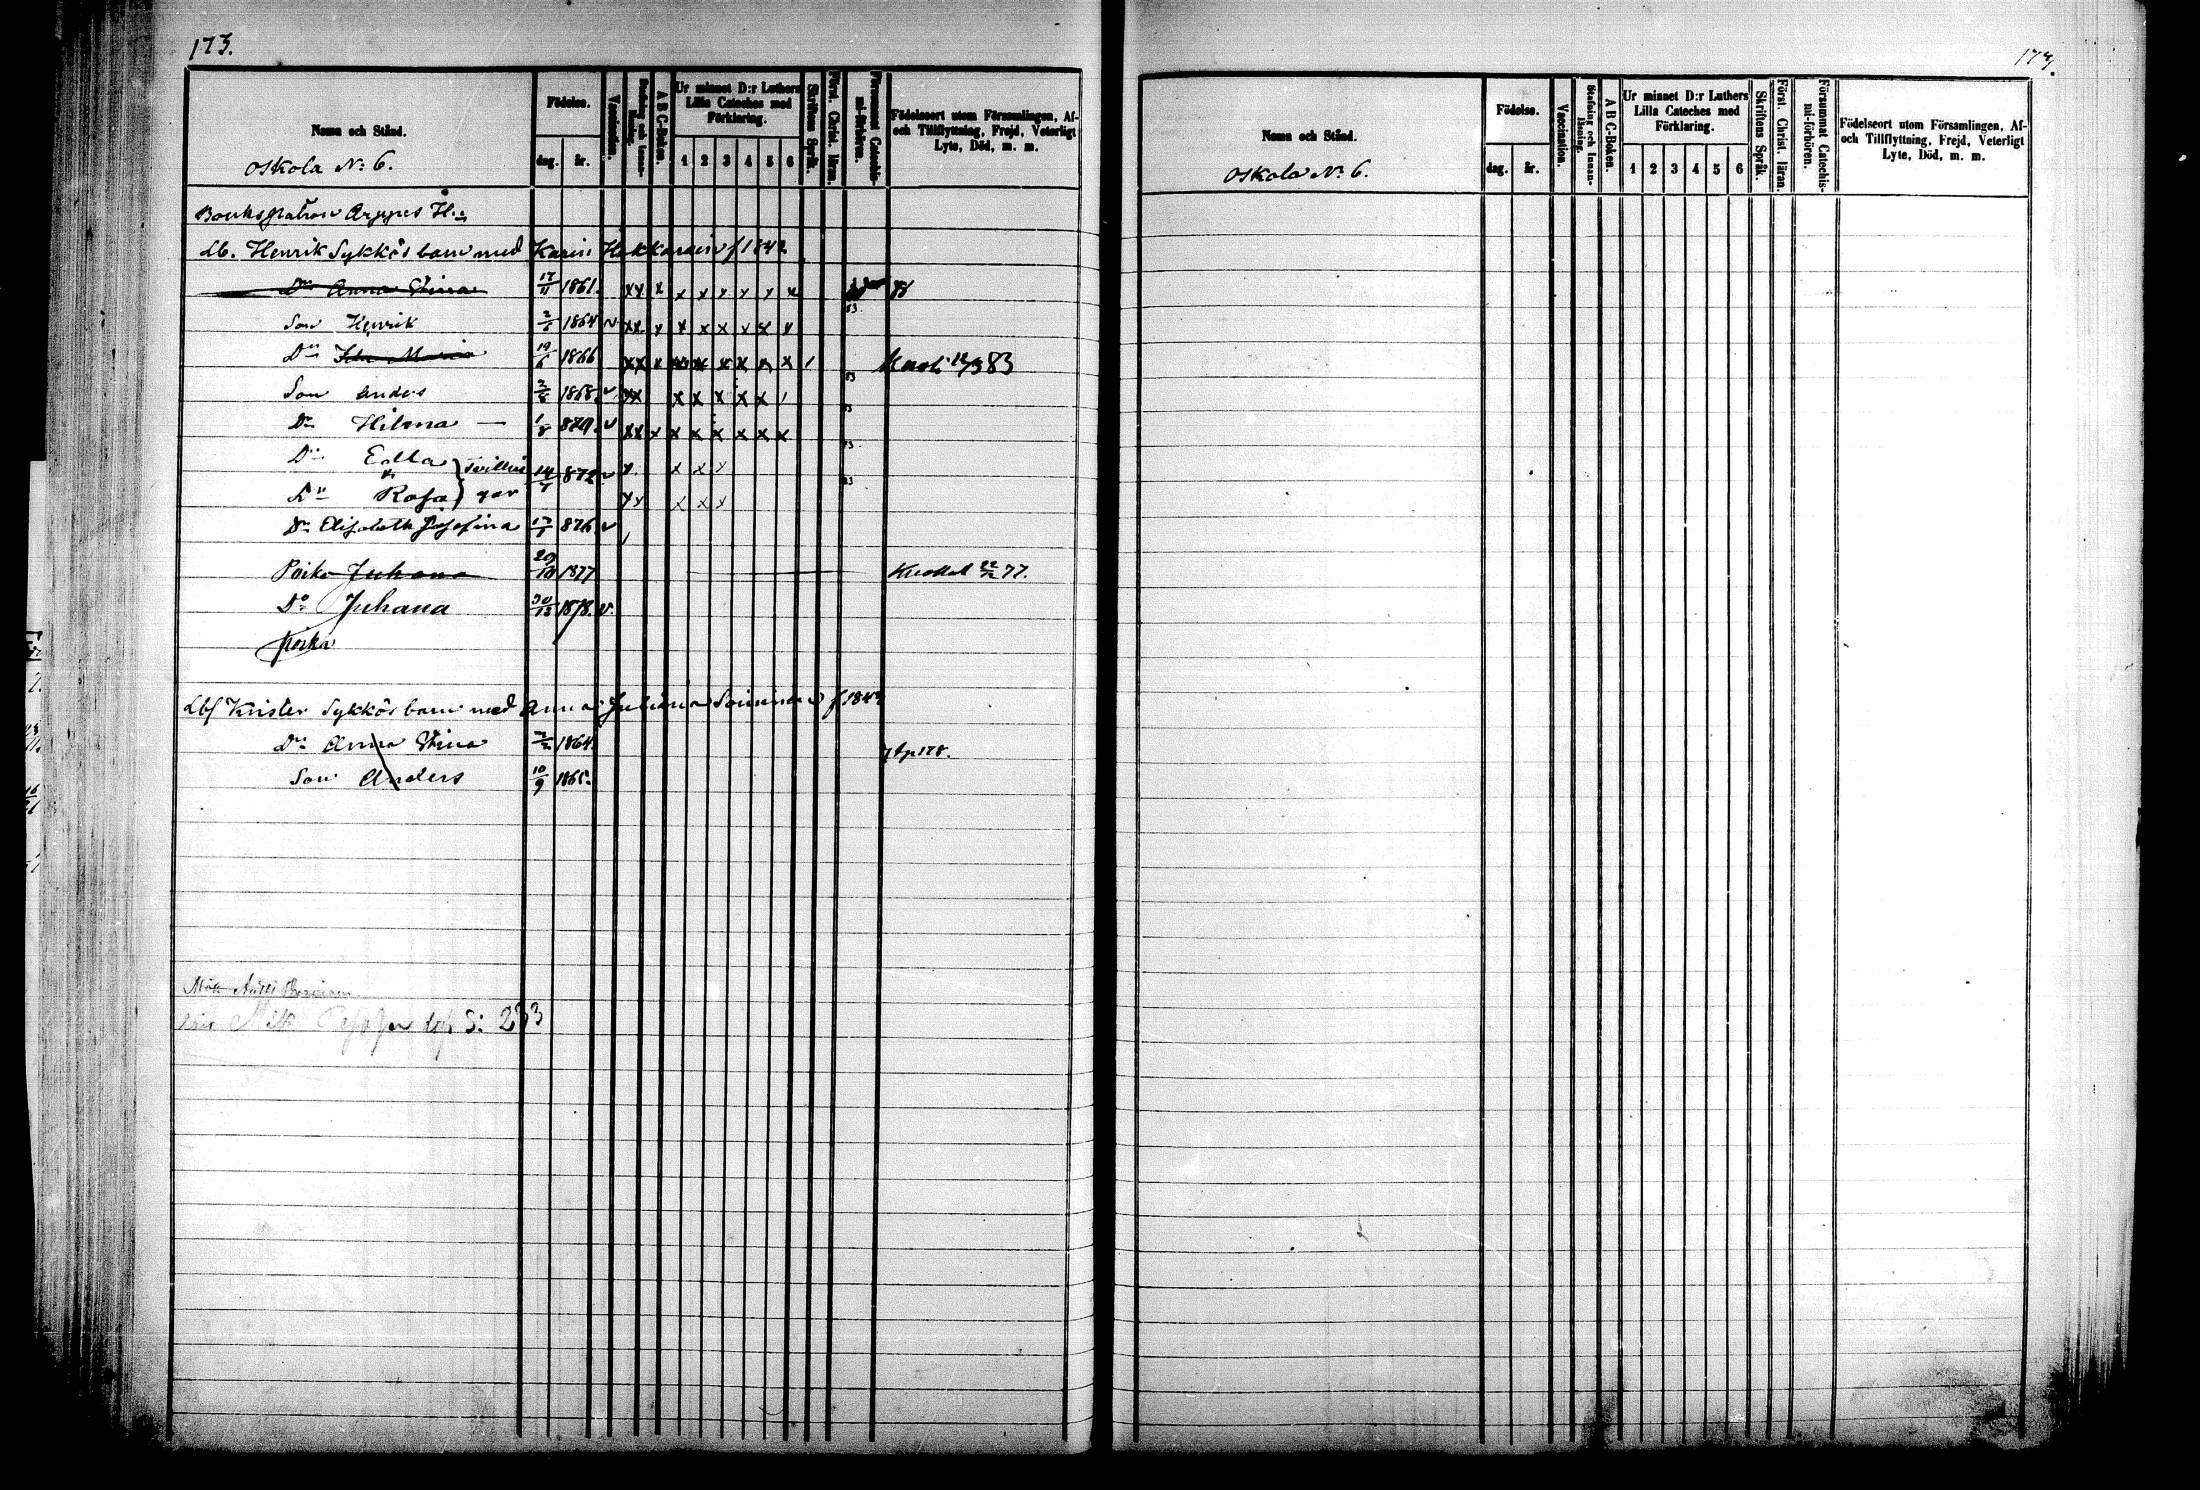 173.
Namn och Stånd.
Oskola No 6.
Födelse.
dag. år.
Vaccination.
Stafning och Innanläsning.
A B C-Boken.
Ur minnet D:r Luthers Lilla Cateches med Förklaring.
1 2 3 4 5 6
Skriftens Språk.
Först. Christ. läran.
Försummat Catechismi-förhören.
Födelseort utom Församlingen, Af- och Tillflyttning, Frejd, Veterligt Lyte, Död, m. m.
Bruks patron Arppes H:
Lb. Henrik Sykkös barn med Karin Hakkarain f 1842
Dr Anna Stina 17/11 1861. xx x x x x x x x
Son Henrik 1864 v xx x x x x x x x 83.
Dr Ida Maria 19/6 1866 xx x x x x x x x 1 12/3 83
Son Anders 1868. v xx x x x x x 1 83
Dr Hilma — 1/8 870. v xx x x x x x x x 83
Dr Edla } Tvillin 14 872 v x. x x x 83
Dr Rosa } gar xx x x x 83
Dr Elisabeth Josefina 876 v
Poika Juhana 29/10 1877 Kuollut 22/12 77.
Do Juhana 30/12 1878. v.
Poika
Lbf Krister Sykkös barn med Anna Juliana Soininen f 184
Dr Anna Stina 1864. p 178.
Son Anders 10/9 1865.
S: 233
173.
Namn och Stånd.
Oskola No 6.
Födelse.
dag. år.
Vaccination.
Stafning och Innanläsning.
A B C-Boken.
Ur minnet D:r Luthers Lilla Cateches med Förklaring.
1 2 3 4 5 6
Skriftens Språk.
Först. Christ. läran.
Försummat Catechismi-förhören.
Födelseort utom Församlingen, Af- och Tillflyttning, Frejd, Veterligt Lyte, Död, m. m.